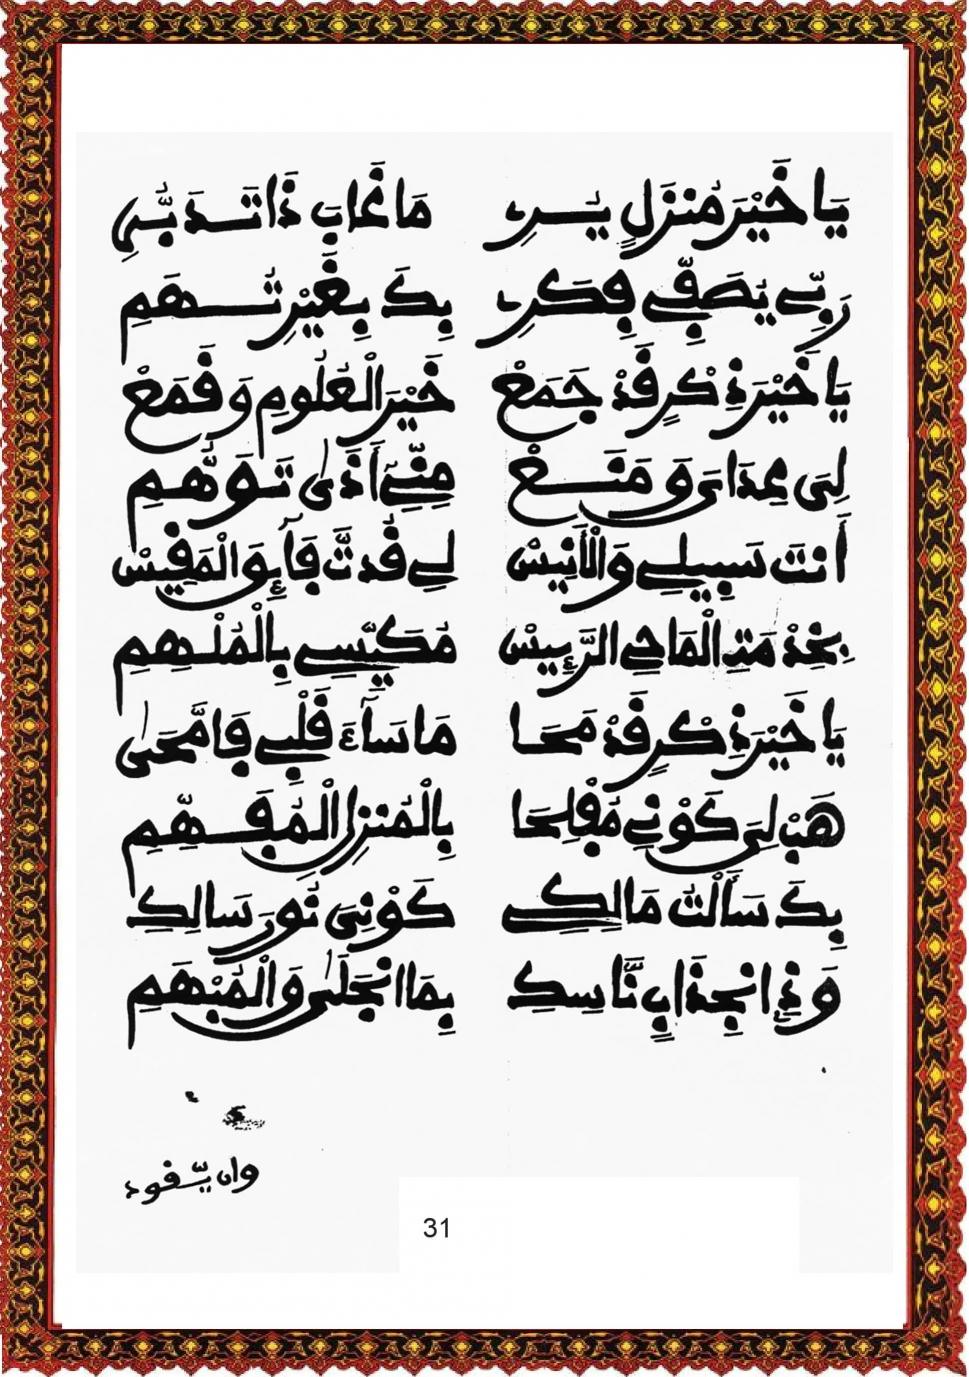 يَا خَيْرَ مُنزَلٍ يُرِي مَا غَابَ ذَا تَدَبُّرِ
رَبِّي يُصَفِّي فِكَرِي بِكَ بِغَيْرِ تُهَمِ
يَا خَيْرَ ذِكْرٍ قَدْ جَمَعْ خَيْرَ الْعُلُومِ وَقَمَعْ
لِي عِدَايَ وَمَنَعْ مِنِّي أَذَى تَوَهُّمِ
أَنتَ سَبِيلِي وَالْأَنِيسْ لِي قُدتَّ فَآئِقَ الْمَقِيسْ
بِخِدْمَةِ الْمَاحِي الرَّئِيسْ مُكَيِّسِي بِالْمُلْهِمِ
يَا خَيْرَ ذِكْرٍ قَدْ مَحَا مَا سَآءَ قَلْبِي فَامَّحَى
هَبْ لِيَ كَوْنِي مُفْلِحَا بِالْمُنزِلِ الْمُفَهِّمِ
بِكَ سَأَلْتُ مَالِكِي كَوْنِيَ نُورَ سَالِكِ
وَذِي انْجِذَابٍ نَّاسِكِ بِمَا انْجَلَى وَالْمُبْهَمِ
وان يّقود
31